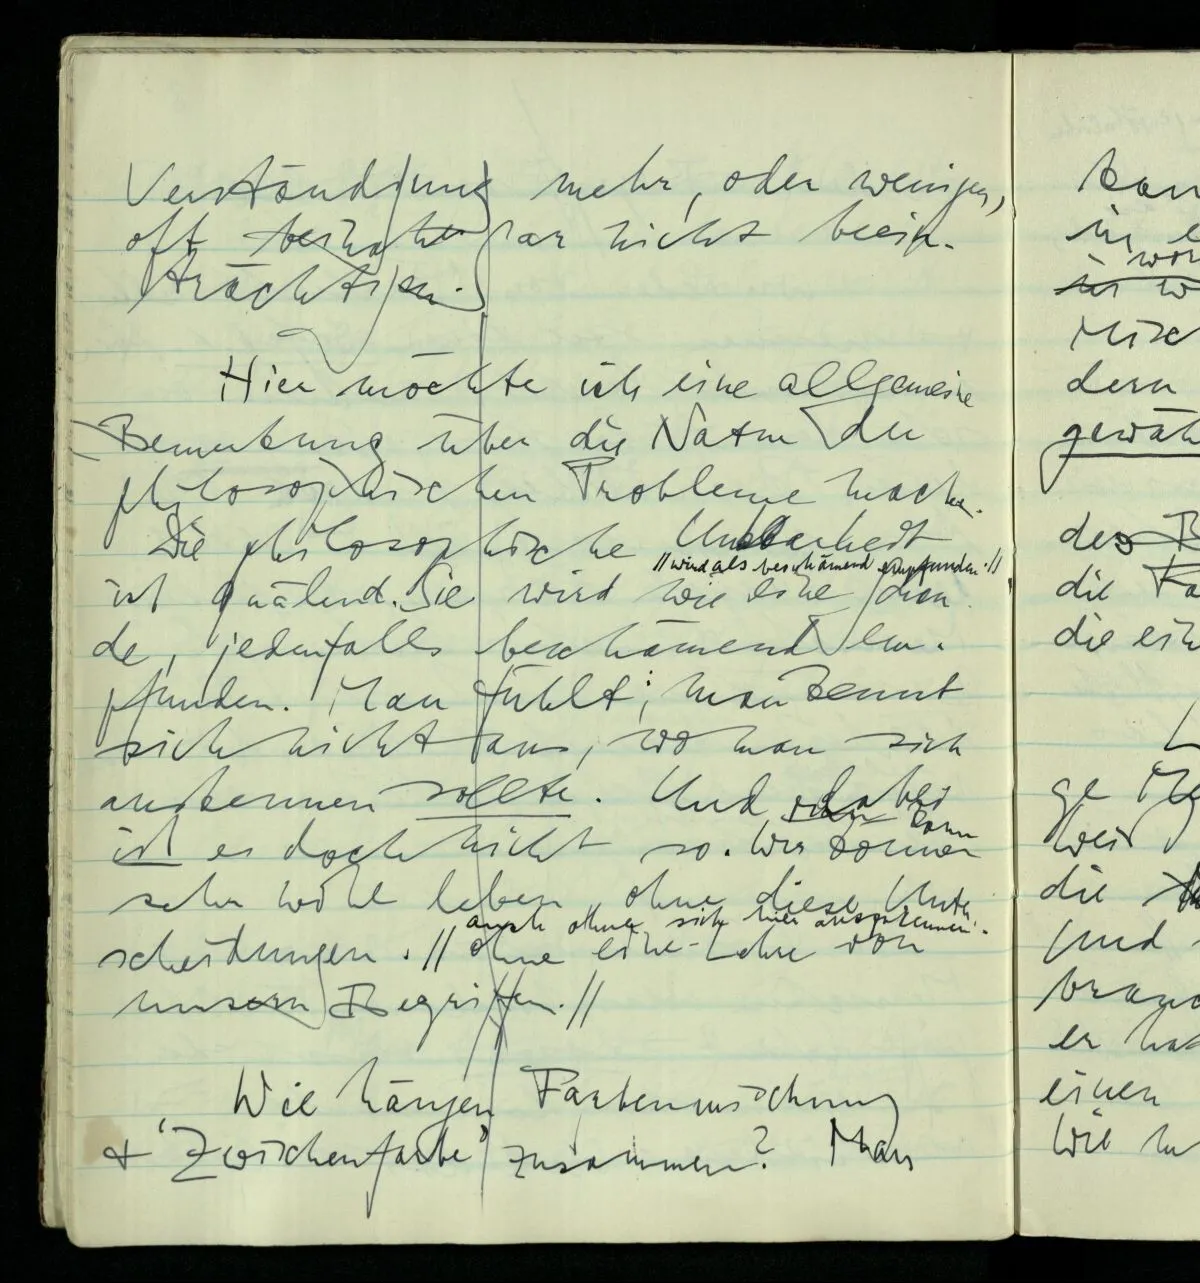 Verständigung mehr, oder weniger,
oft gar nicht beein-
trächtigen.
Hier möchte ich eine allgemeine
Bemerkung über die Natur der
philosophischen Probleme machen.
Die philosophische Unklarheit
// wird als beschämend empfunden. //
ist quälend. Sie wird wie eine
de, jedenfalls beschämend em-
pfunden. Man fühlt; man kennt
sich nicht aus, wo man sich
auskennen sollte. Und dabei
ist es doch nicht so. Wir können
sehr wohl leben ohne diese Unter-
auch ohne sich hier auszukennen.
scheidungen. // ohne eine Lehre von
unsern Begriffen. //
Wie hängen Farbenmischung
& 'Zwischenfarbe' zusammen? Man
kan
in e
in w
Misc
dern
gewöh
des B
die Fa
die ein
L
ge
Weis
die
Und s
brauc
er hat
einen
Wie